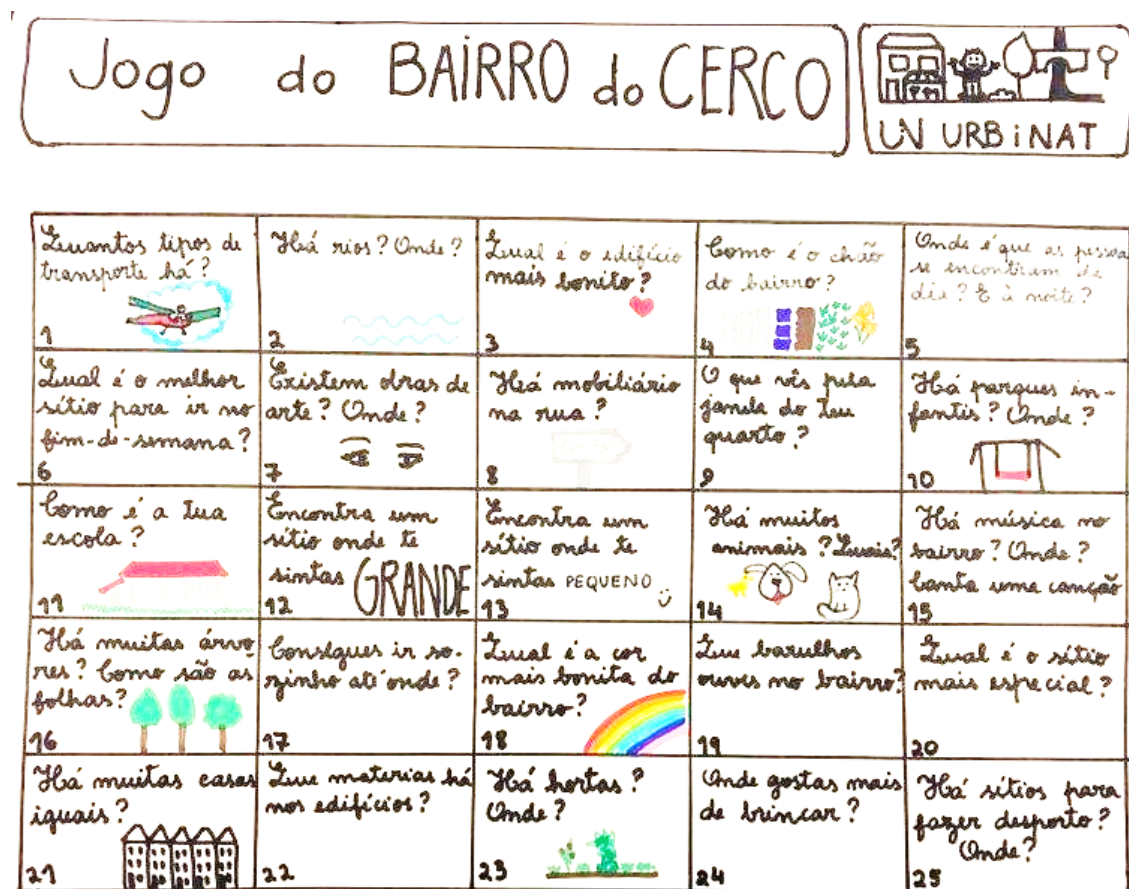 Jogo do BAIRRO do CERCO
UN URBiNAT
Quantos tipos de
transporte há?
1
Há rios? Onde?
2
Qual é o edifício
mais bonito?
3
Como é o chão
do bairro?
4
Onde é que as pessoa
se encontram de
dia? E à noite?
5
Qual é o melhor
sítio para ir no
fim-de-semana?
6
Existem obras de
arte? Onde?
7
Há mobiliário
na rua?
8
O que vês pela
janela do teu
quarto?
9
Há parques in-
fantis? Onde?
10
Como é a tua
escola?
11
Encontra um
sítio onde te
sintas GRANDE
12
Encontra um
sítio onde te
sintas PEQUENO
13
Há muitos
animais? Quais?
14
Há música no
bairro? Onde?
Canta uma canção
15
Há muitas árvo
res? Como são as
folhas?
16
Consegues ir so-
zinho até onde?
17
Qual é a cor
mais bonita do
bairro?
18
Que barulhos
ouves no bairro?
19
Qual é o sítio
mais especial?
20
Há muitas casas
iguais?
21
Que materias há
nos edifícios?
22
Há hortas?
Onde?
23
Onde gostas mais
de brincar?
24
Há sítios para
fazer desporto?
Onde?
25